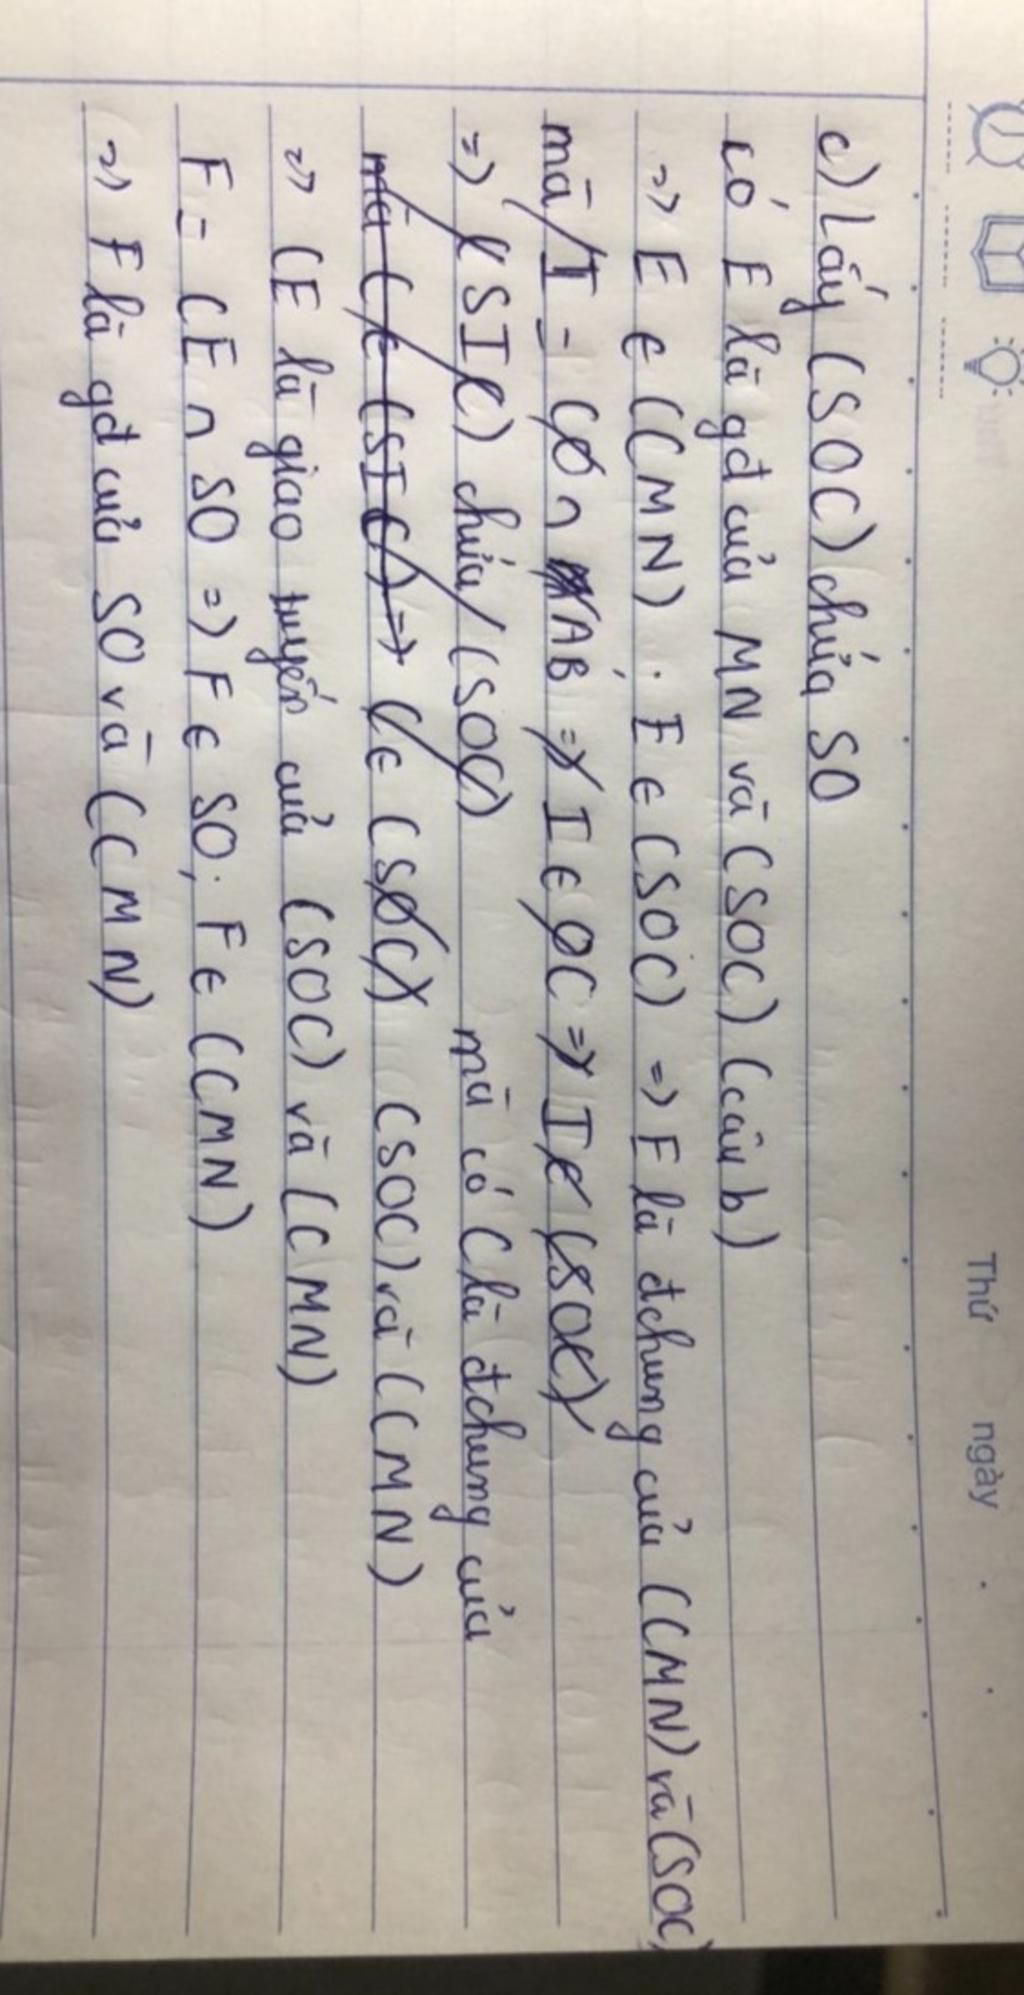 Thứ ngày
c) Lấy (SOC) chứa SO
có E là gđ của MN và (SOC) (câu b)
=> E ∈ (CMN). E ∈ (SOC) => E là đchung của (CMN) và (SOC)
mà I = CO ∩ AB => I ∈ OC => I ∈ (SOC)
=> (SIC) chứa (SOC) mà có C là đchung của
mà C ∈ (SIC) => C ∈ (SOC) (SOC) và (CMN)
=> CE là giao tuyến của (SOC) và (CMN)
F = CE ∩ SO => F ∈ SO; F ∈ (CMN)
=> F là gđ của SO và (CMN)